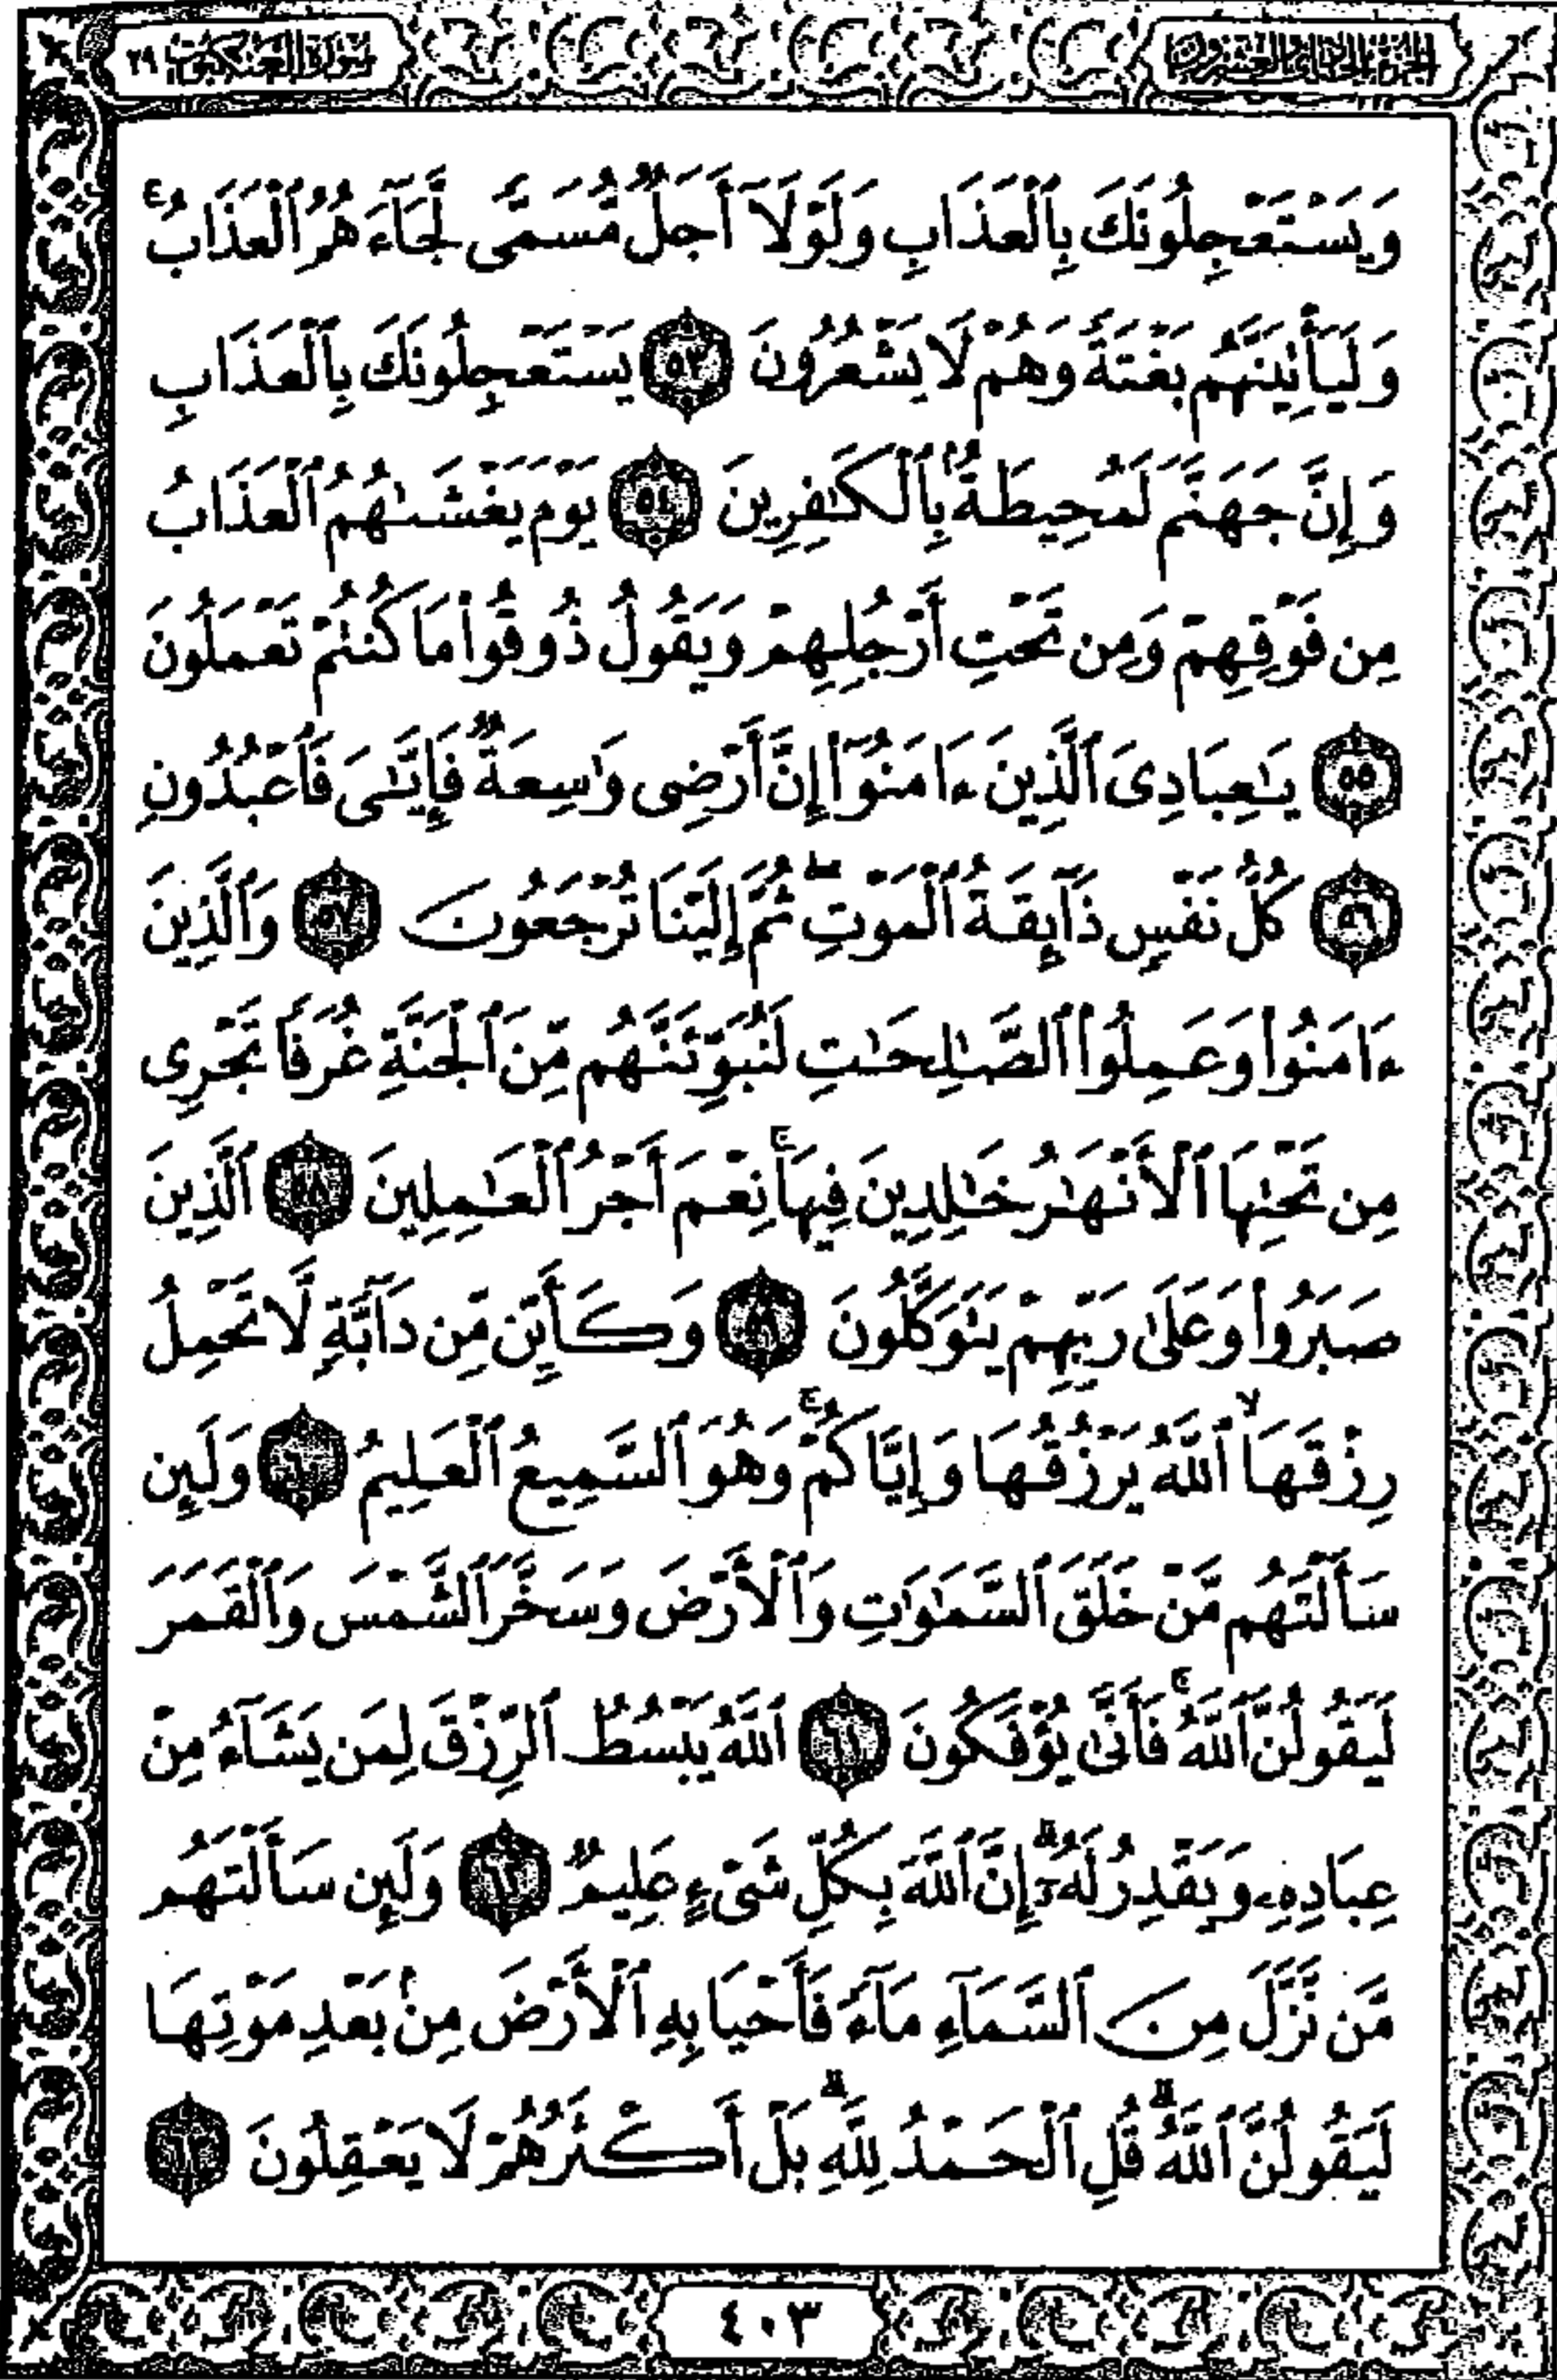 الجزء الحادي والعشرون
سورة العنكبوت ٢٩
وَيَسْتَعْجِلُونَكَ بِٱلْعَذَابِ وَلَوْلَآ أَجَلٌ مُّسَمًّى لَّجَآءَهُمُ ٱلْعَذَابُ ۚ
وَلَيَأْتِيَنَّهُم بَغْتَةً وَهُمْ لَا يَشْعُرُونَ ٥٣ يَسْتَعْجِلُونَكَ بِٱلْعَذَابِ
وَإِنَّ جَهَنَّمَ لَمُحِيطَةٌۢ بِٱلْكَٰفِرِينَ ٥٤ يَوْمَ يَغْشَىٰهُمُ ٱلْعَذَابُ
مِن فَوْقِهِمْ وَمِن تَحْتِ أَرْجُلِهِمْ وَيَقُولُ ذُوقُوا۟ مَا كُنتُمْ تَعْمَلُونَ
٥٥ يَٰعِبَادِىَ ٱلَّذِينَ ءَامَنُوٓا۟ إِنَّ أَرْضِى وَٰسِعَةٌ فَإِيَّٰىَ فَٱعْبُدُونِ
٥٦ كُلُّ نَفْسٍ ذَآئِقَةُ ٱلْمَوْتِ ۖ ثُمَّ إِلَيْنَا تُرْجَعُونَ ٥٧ وَٱلَّذِينَ
ءَامَنُوا۟ وَعَمِلُوا۟ ٱلصَّٰلِحَٰتِ لَنُبَوِّئَنَّهُم مِّنَ ٱلْجَنَّةِ غُرَفًا تَجْرِى
مِن تَحْتِهَا ٱلْأَنْهَٰرُ خَٰلِدِينَ فِيهَا ۚ نِعْمَ أَجْرُ ٱلْعَٰمِلِينَ ٥٨ ٱلَّذِينَ
صَبَرُوا۟ وَعَلَىٰ رَبِّهِمْ يَتَوَكَّلُونَ ٥٩ وَكَأَيِّن مِّن دَآبَّةٍ لَّا تَحْمِلُ
رِزْقَهَا ۙ ٱللَّهُ يَرْزُقُهَا وَإِيَّاكُمْ ۚ وَهُوَ ٱلسَّمِيعُ ٱلْعَلِيمُ ٦٠ وَلَئِن
سَأَلْتَهُم مَّنْ خَلَقَ ٱلسَّمَٰوَٰتِ وَٱلْأَرْضَ وَسَخَّرَ ٱلشَّمْسَ وَٱلْقَمَرَ
لَيَقُولُنَّ ٱللَّهُ ۚ فَأَنَّىٰ يُؤْفَكُونَ ٦١ ٱللَّهُ يَبْسُطُ ٱلرِّزْقَ لِمَن يَشَآءُ مِنْ
عِبَادِهِۦ وَيَقْدِرُ لَهُۥٓ ۗ إِنَّ ٱللَّهَ بِكُلِّ شَىْءٍ عَلِيمٌ ٦٢ وَلَئِن سَأَلْتَهُم
مَّن نَّزَّلَ مِنَ ٱلسَّمَآءِ مَآءً فَأَحْيَا بِهِ ٱلْأَرْضَ مِنۢ بَعْدِ مَوْتِهَا
لَيَقُولُنَّ ٱللَّهُ ۗ قُلِ ٱلْحَمْدُ لِلَّهِ ۗ بَلْ أَكْثَرُهُمْ لَا يَعْقِلُونَ ٦٣
٤٠٣